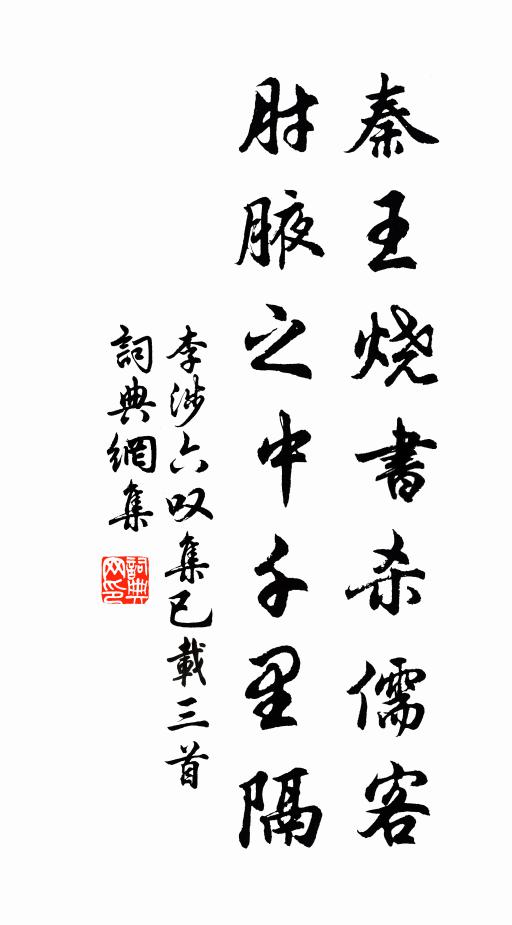 秦王烧書杀儒客
肘腋之中千里隔
李涉六叹集已載三首
詞典網集
詞典网印